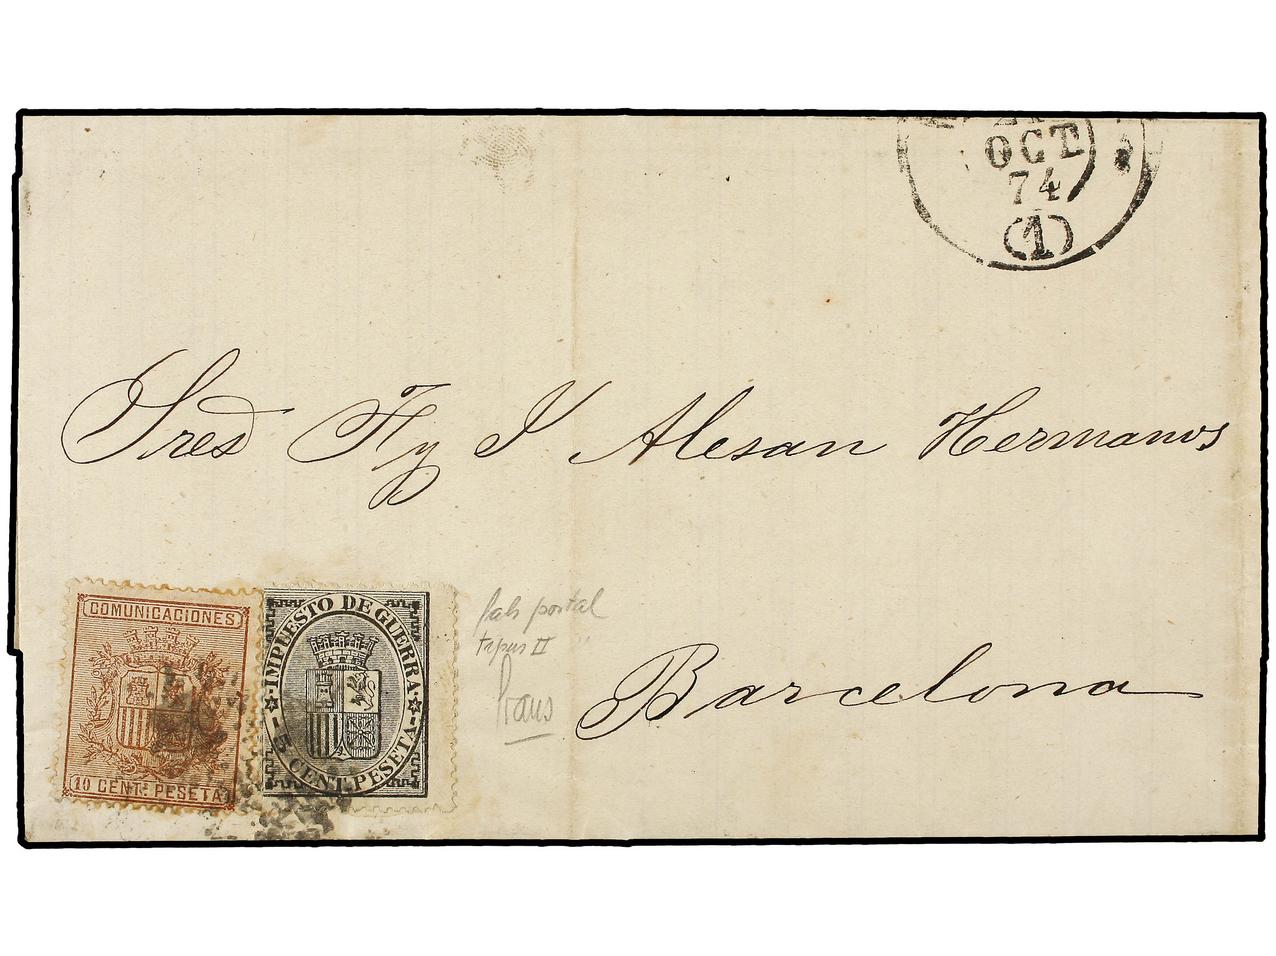 OCT
74
(1)
Sres F y J Alesan Hermanos
Barcelona
COMUNICACIONES
10 CENT. PESETA
IMPUESTO DE GUERRA
5 CENT. PESETA
fals postal
tipus II "